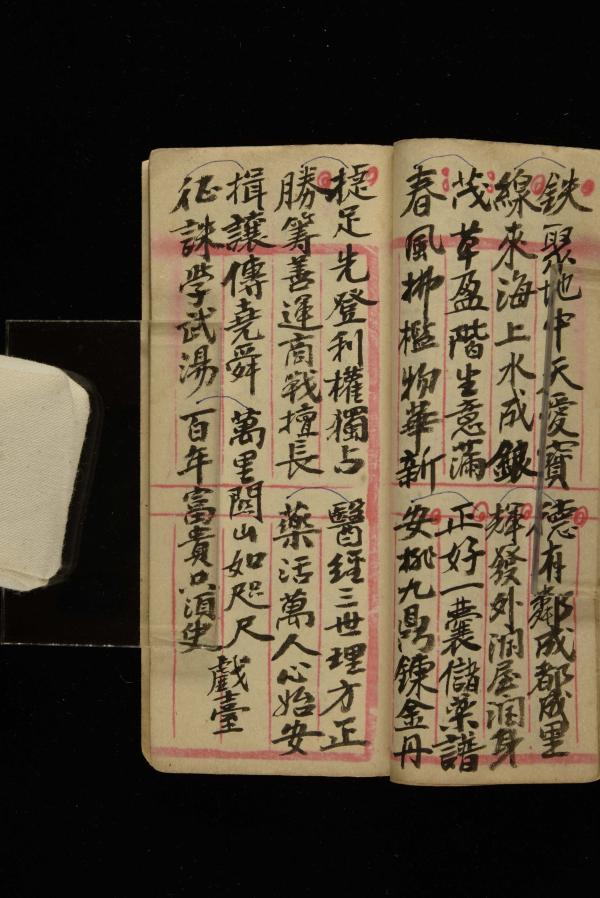 鉄聚地中天愛寶
線來海上水成銀
茂草盈階生意滿
春風拂檻物華新
德有鄰成都成里
輝發外潤屋潤身
正好一囊儲藥譜
安排九鼎鍊金丹
捷足先登利權獨占
勝籌善運商戰擅長
揖讓傳堯舜
征誅學武湯
醫經三世理方正
藥活萬人心始安
萬里関山如咫尺
百年富貴只須臾
戲臺